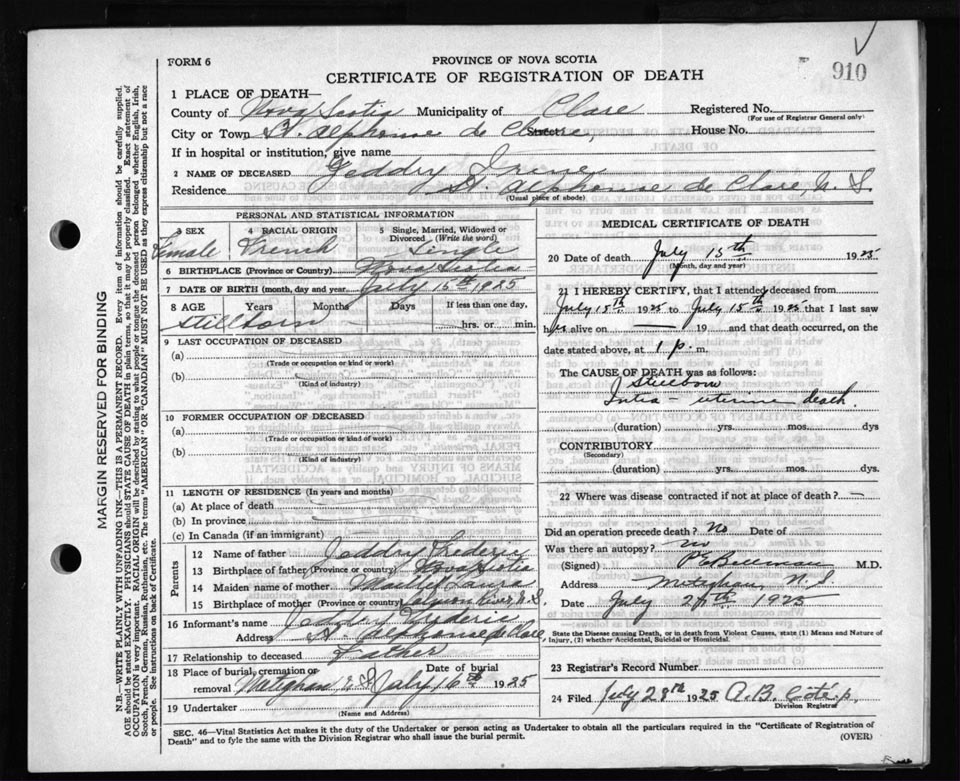 FORM 6
PROVINCE OF NOVA SCOTIA
CERTIFICATE OF REGISTRATION OF DEATH
910
1 PLACE OF DEATH—
County of Nova Scotia Municipality of Clare Registered No.
(For use of Registrar General only)
City or Town St. Alphonse de Clare, Street House No.
If in hospital or institution, give name
2 NAME OF DECEASED Geddry Irene
Residence St. Alphonse de Clare, N. S.
(Usual place of abode)
PERSONAL AND STATISTICAL INFORMATION
3 SEX 4 RACIAL ORIGIN 5 Single, Married, Widowed or Divorced (Write the word)
Female French Single
6 BIRTHPLACE (Province or Country) Nova Scotia
7 DATE OF BIRTH (month, day and year) July 15th 1925
8 AGE Years Months Days If less than one day,
Stillborn — hrs. or min.
9 LAST OCCUPATION OF DECEASED
(a)
(Trade or occupation or kind or work)
(b)
(Kind of industry)
10 FORMER OCCUPATION OF DECEASED
(a)
(Trade or occupation or kind of work)
(b)
(Kind of industry)
11 LENGTH OF RESIDENCE (In years and months)
(a) At place of death
(b) In province
(c) In Canada (if an immigrant)
Parents
12 Name of father Geddry Frederic
13 Birthplace of father (Province or country) Nova Scotia
14 Maiden name of mother Laura
15 Birthplace of mother (Province or country) River, N.S.
16 Informant's name Geddry Frederic
Address St. Alphonse de Clare
17 Relationship to deceased Father
18 Place of burial, cremation or removal Meteghan Date of burial July 16th 1925
19 Undertaker
(Name and Address)
MEDICAL CERTIFICATE OF DEATH
20 Date of death July 15th 1925
(Month, day and year)
21 I HEREBY CERTIFY, that I attended deceased from
July 15th 1925 to July 15th 1925 that I last saw
her alive on — 19 and that death occurred, on the
date stated above, at 1 p. m.
The CAUSE OF DEATH was as follows:
Stillborn
Intra-uterine death.
(duration) yrs. mos. dys
CONTRIBUTORY
(Secondary)
(duration) yrs. mos. dys.
22 Where was disease contracted if not at place of death? —
Did an operation precede death? No Date of —
Was there an autopsy? no
(Signed) M.D.
Address Meteghan, N.S
Date July 1925
State the Disease causing Death, or in death from Violent Causes, state (1) Means and Nature of Injury, (2) whether Accidental, Suicidal or Homicidal.
23 Registrar's Record Number
24 Filed July 28th 1925 A. B.
Division Registrar
SEC. 46—Vital Statistics Act makes it the duty of the Undertaker or person acting as Undertaker to obtain all the particulars required in the "Certificate of Registration of
Death" and to fyle the same with the Division Registrar who shall issue the burial permit. (OVER)
MARGIN RESERVED FOR BINDING
N.B.—WRITE PLAINLY WITH UNFADING INK—THIS IS A PERMANENT RECORD. Every item of information should be carefully supplied.
AGE should be stated EXACTLY. PHYSICIANS should STATE CAUSE OF DEATH in plain terms, so that it may be properly classified. Exact statement of
OCCUPATION is very important. RACIAL ORIGIN will be described by stating to what people or tongue the deceased person belonged whether English, Irish,
Scotch, French, German, Russian, Ruthenian, etc. The terms "AMERICAN" OR "CANADIAN" MUST NOT BE USED as they express citizenship but not a race
or people. See instructions on back of Certificate.